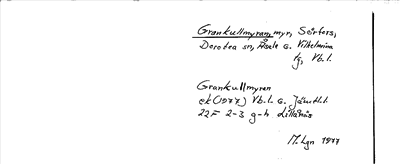 Grankullmyran, myr, Seirfors,
Dorotea sn, Åsele o. Vilhelmina
tg, Vb.l.
Grankullmyren
ek (1977) Vb.l. o. Jämtl.
22F 2-3 g-h Lillånäs
M. Lgn 1977